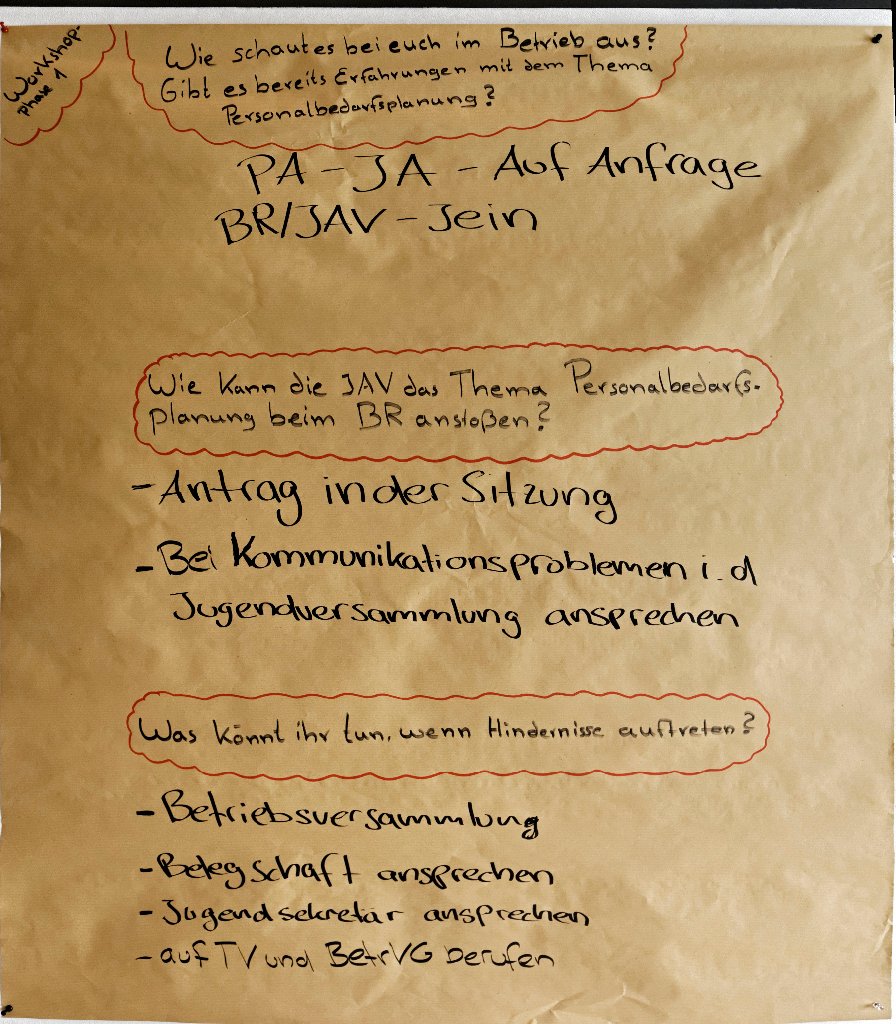 Workshop-
phase 1
Wie schaut es bei euch im Betrieb aus?
Gibt es bereits Erfahrungen mit dem Thema
Personalbedarfsplanung?
PA - JA - Auf Anfrage
BR/JAV - Jein
Wie kann die JAV das Thema Personalbedarfs-
planung beim BR anstoßen?
- Antrag in der Sitzung
- Bei Kommunikationsproblemen i.d
Jugendversammlung ansprechen
Was könnt ihr tun, wenn Hindernisse auftreten?
- Betriebsversammlung
- Belegschaft ansprechen
- Jugendsekretär ansprechen
- auf TV und BetrVG berufen